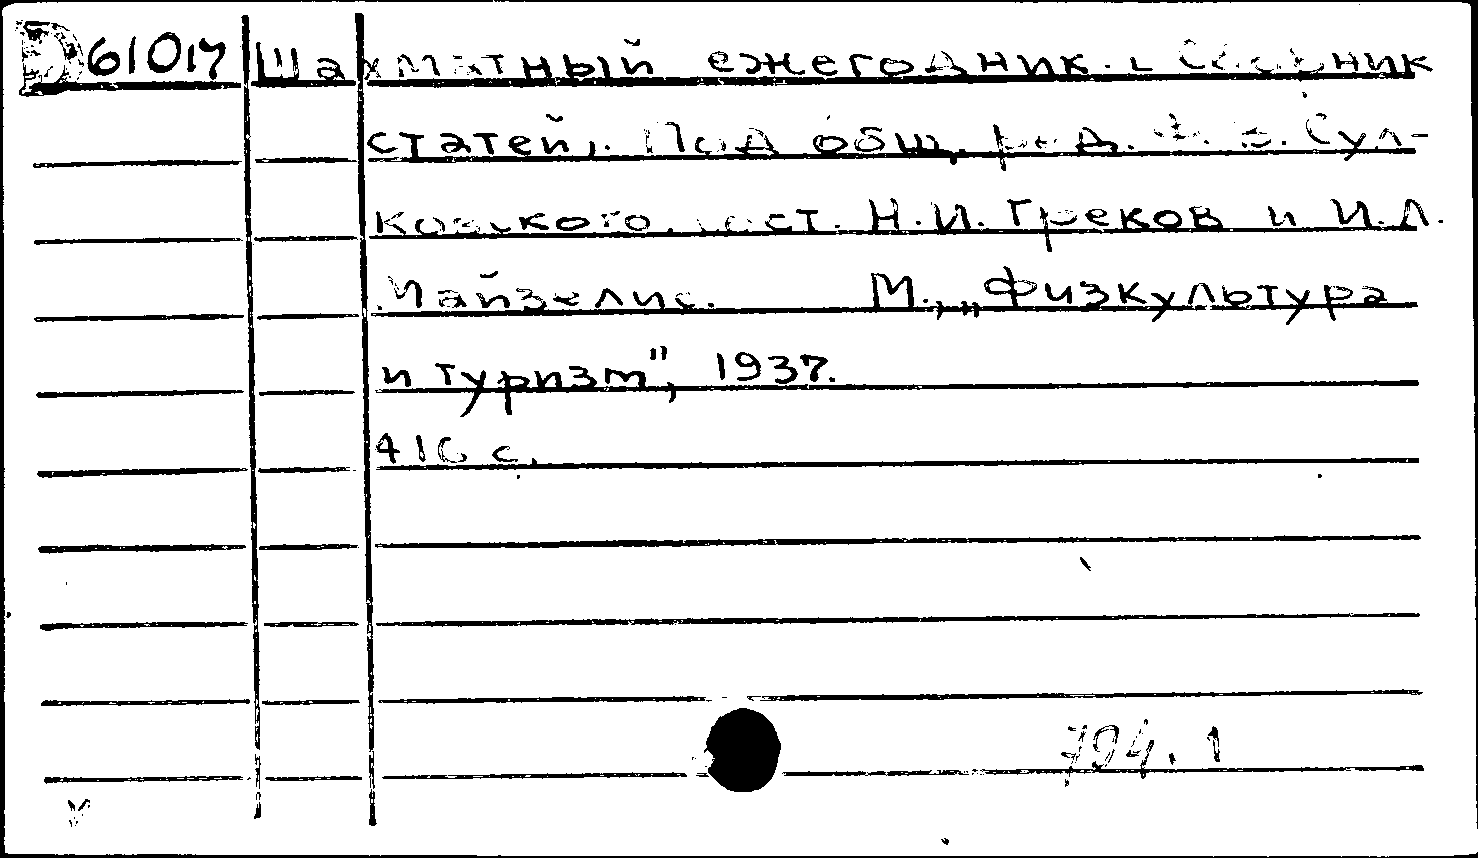 D61017 Шахматный ежегодник. Сборник
статей. Под общ. ред.
ковского. Сост. Н.И. Греков и И.Л.
Майзелис. М., „Физкультура
и туризм", 1937.
416 с.
794.1